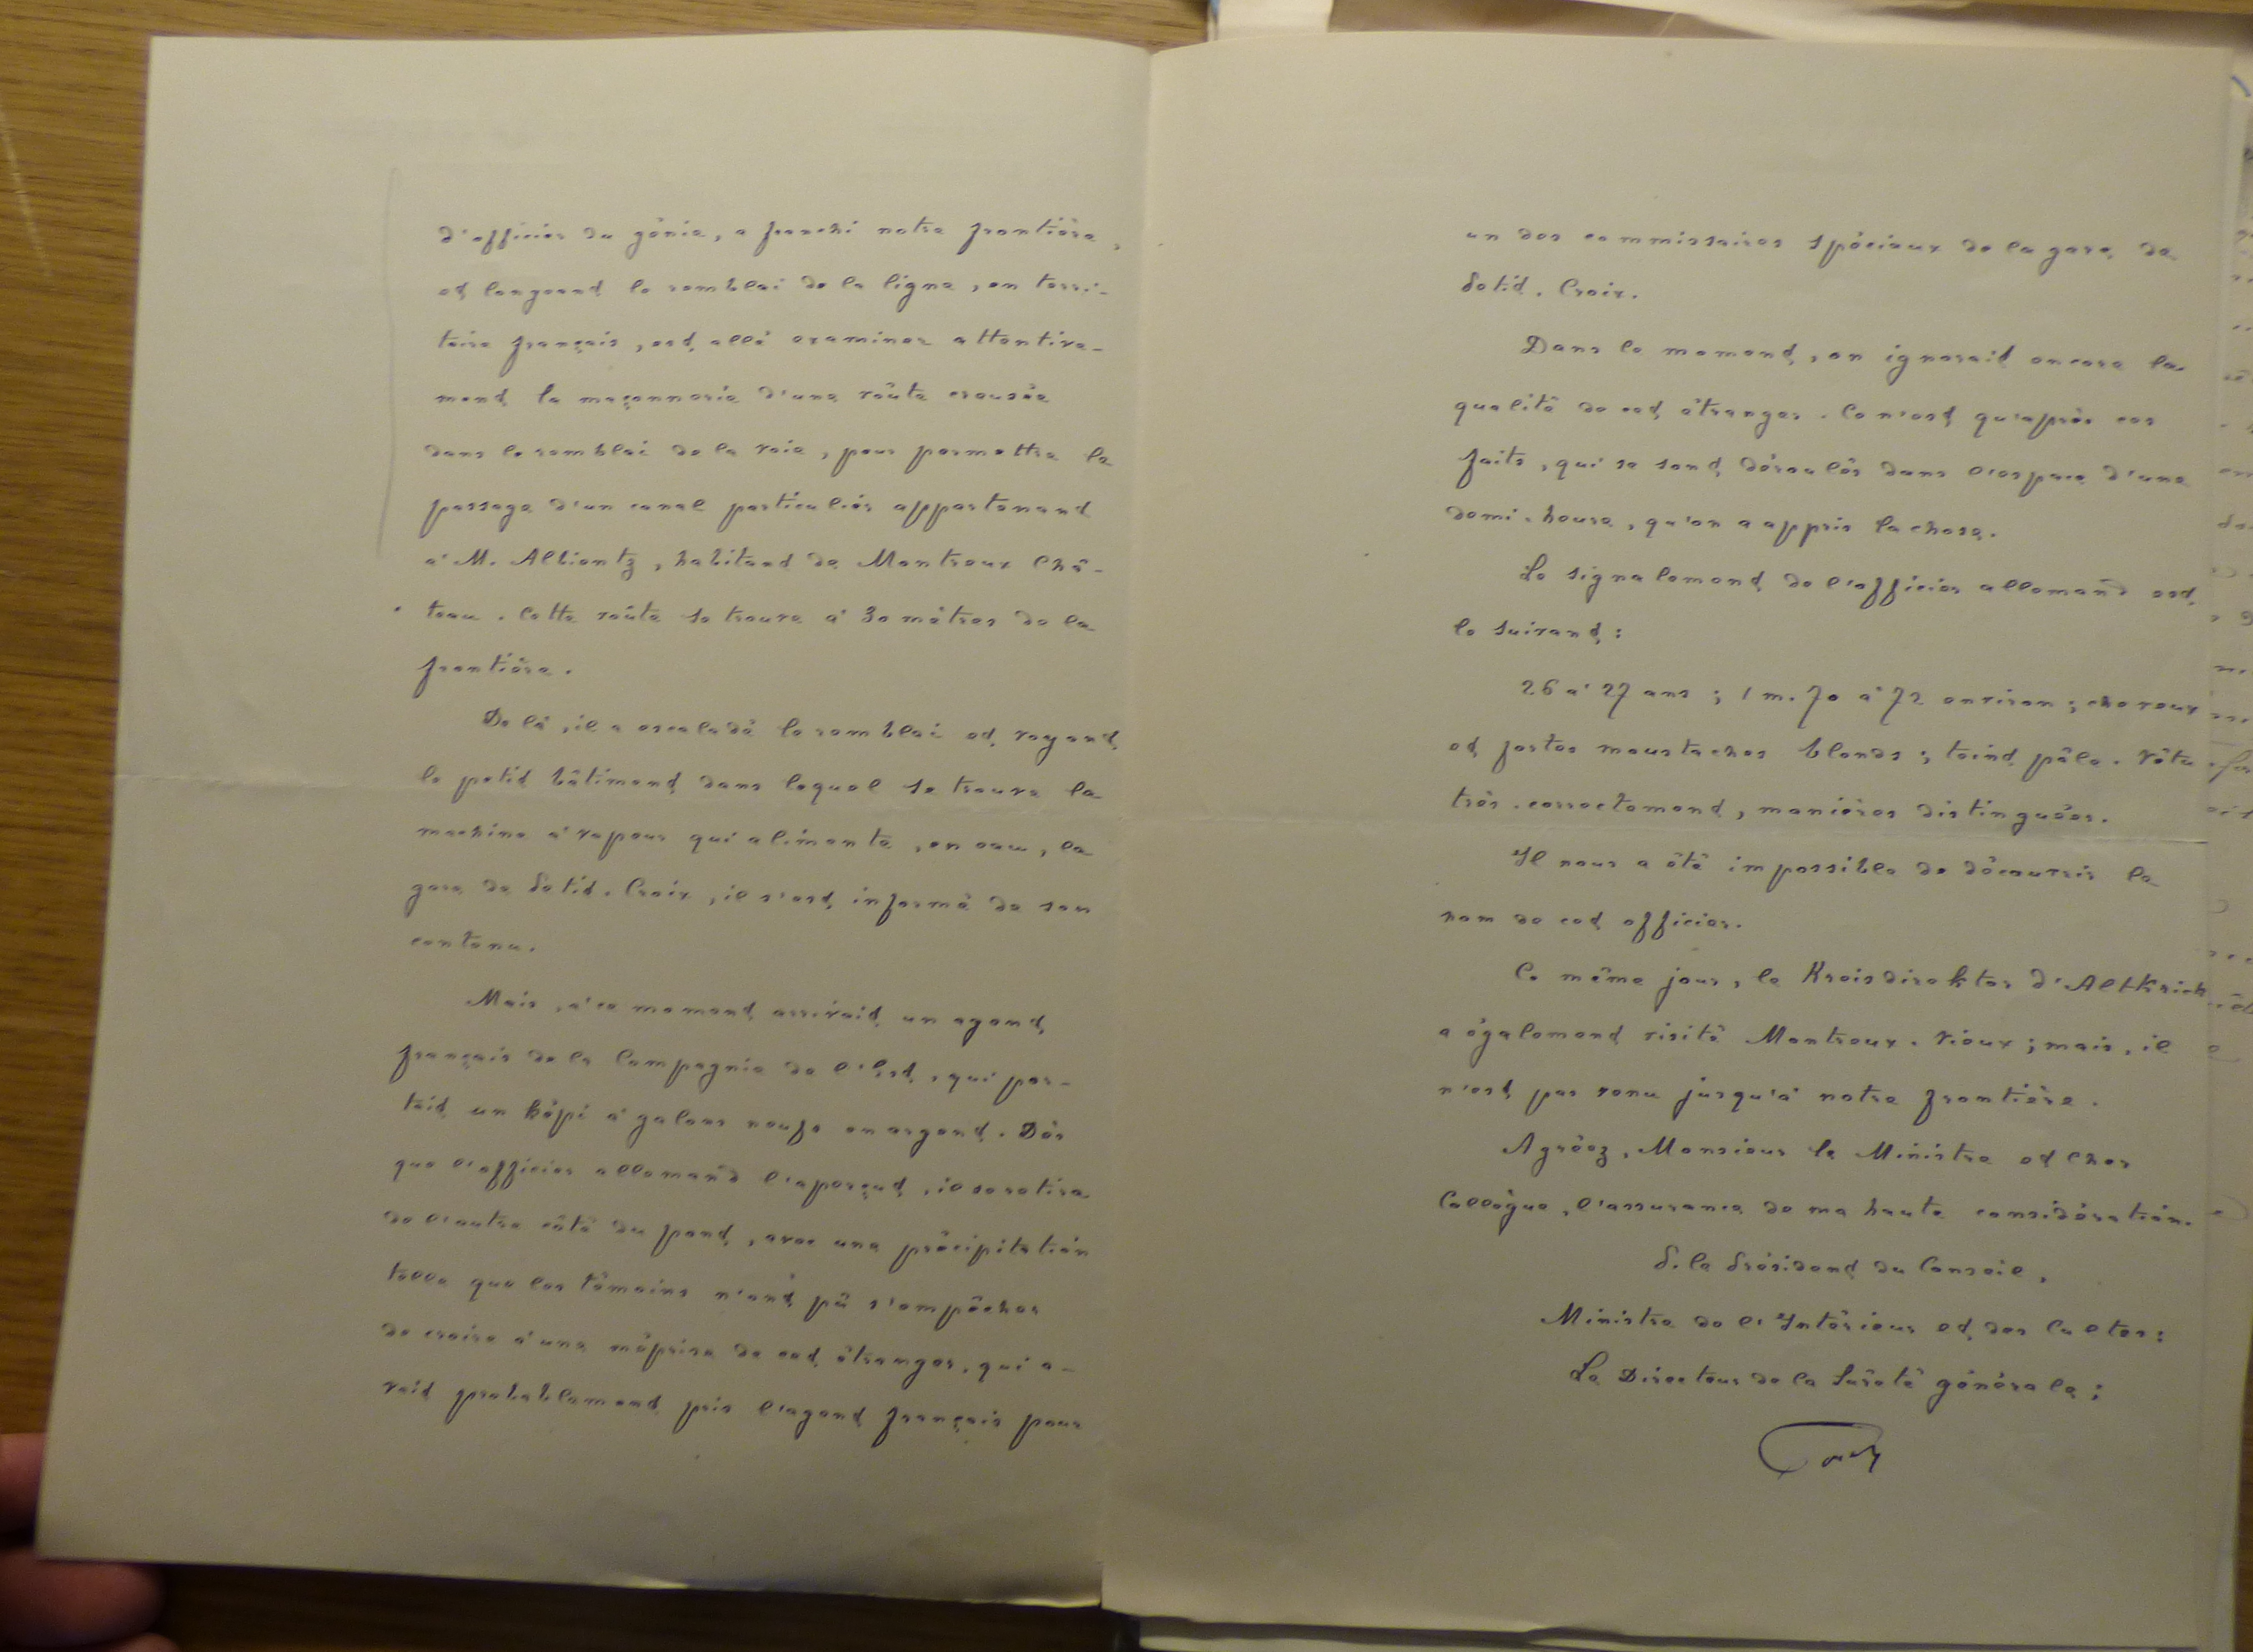 d'officier du génie, a franchi notre frontière,
et longeant le remblai de la ligne, en terri-
toire français, est allé examiner attentive-
ment la maçonnerie d'une voûte creusée
dans le remblai de la voie, pour permettre le
passage d'un canal particulier appartenant
à M. Albientz, habitant de Montreux Châ-
teau. Cette voûte se trouve à 30 mètres de la
frontière.
De là, il a escaladé le remblai et, voyant
le petit bâtiment dans lequel se trouve la
machine à vapeur qui alimente, en eau, la
gare de Petit-Croix, il s'est informé de son
contenu.
Mais, à ce moment arrivait un agent
français de la Compagnie de l'Est, qui por-
tait un képi à galons neufs en argent. Dès
que l'officier allemand l'aperçut, il se retira
de l'autre côté du pont, avec une précipitation
telle que les témoins n'ont pû s'empêcher
de croire à une méprise de cet étranger, qui a-
vait probablement pris l'agent français pour
un des commissaires spéciaux de la gare de
Petit-Croix.
Dans le moment, on ignorait encore la
qualité de cet étranger. Ce n'est qu'après ces
faits, qui se sont déroulés dans l'espace d'une
demi-heure, qu'on a appris la chose.
Le signalement de l'officier allemand est
le suivant :
26 à 27 ans ; 1 m. 70 à 72 environ ; cheveux
et fortes moustaches blonds ; teint pâle. Vêtu
très-correctement, manières distinguées.
Il nous a été impossible de découvrir le
nom de cet officier.
Ce même jour, le Kreisdirektor d'Altkrich
a également visité Montreux-Vieux ; mais, il
n'est pas venu jusqu'à notre frontière.
Agréez, Monsieur le Ministre et Cher
Collègue, l'assurance de ma haute considération.
P. le Président du Conseil,
Ministre de l'Intérieur et des Cultes :
Le Directeur de la Sûreté générale ;